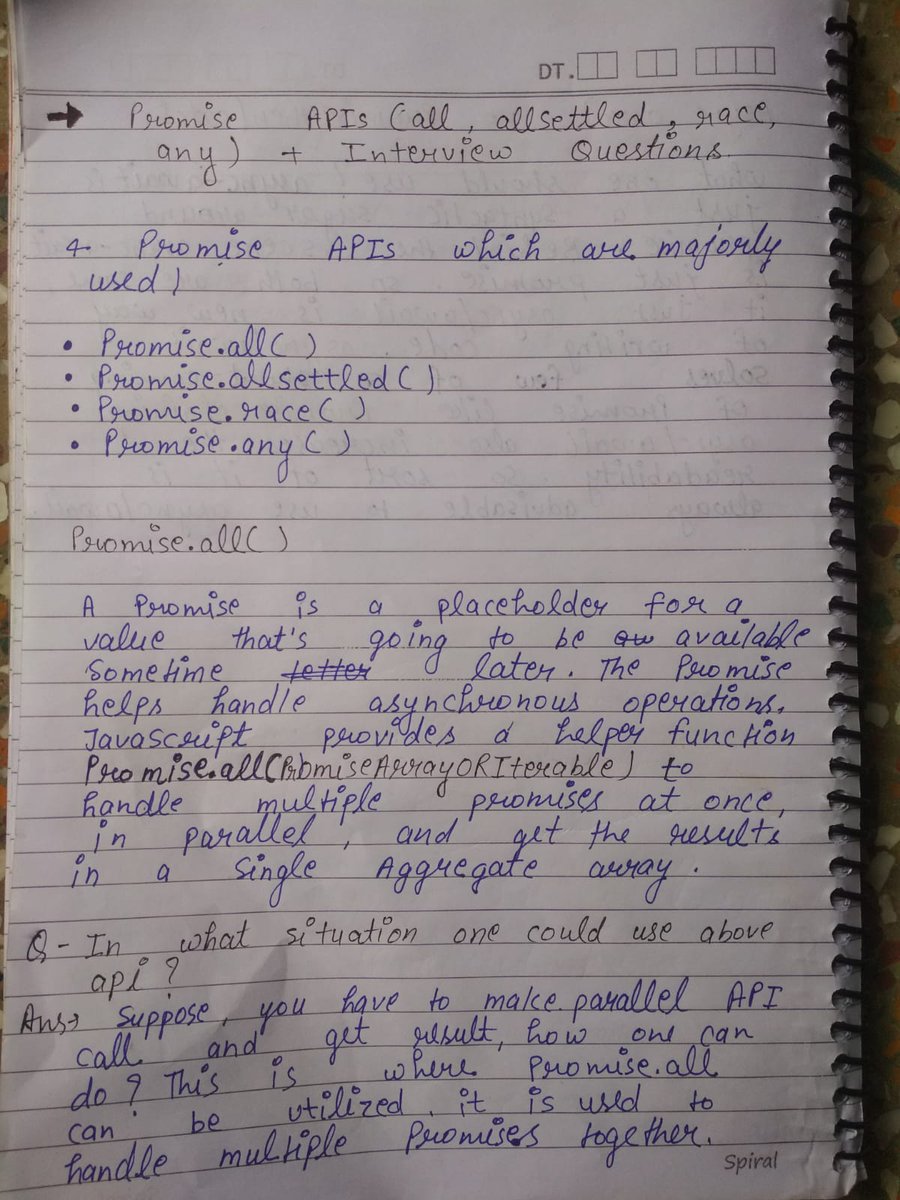 DT.
→ Promise APIs (all, allsettled, race,
any) + Interview Questions
4 Promise APIs which are majorly
used!
• Promise.all()
• Promise.allsettled()
• Promise.race()
• Promise.any()
Promise.all()
A Promise is a placeholder for a
value that's going to be available
sometime later. The Promise
helps handle asynchronous operations.
JavaScript provides a helper function
Promise.all(PromiseArrayORIterable) to
handle multiple promises at once,
in parallel, and get the results
in a single Aggregate array.
Q- In what situation one could use above
api?
Ans→ Suppose, you have to make parallel API
call and get result, how one can
do? This is where Promise.all
can be utilized. it is used to
handle multiple Promises together.
Spiral